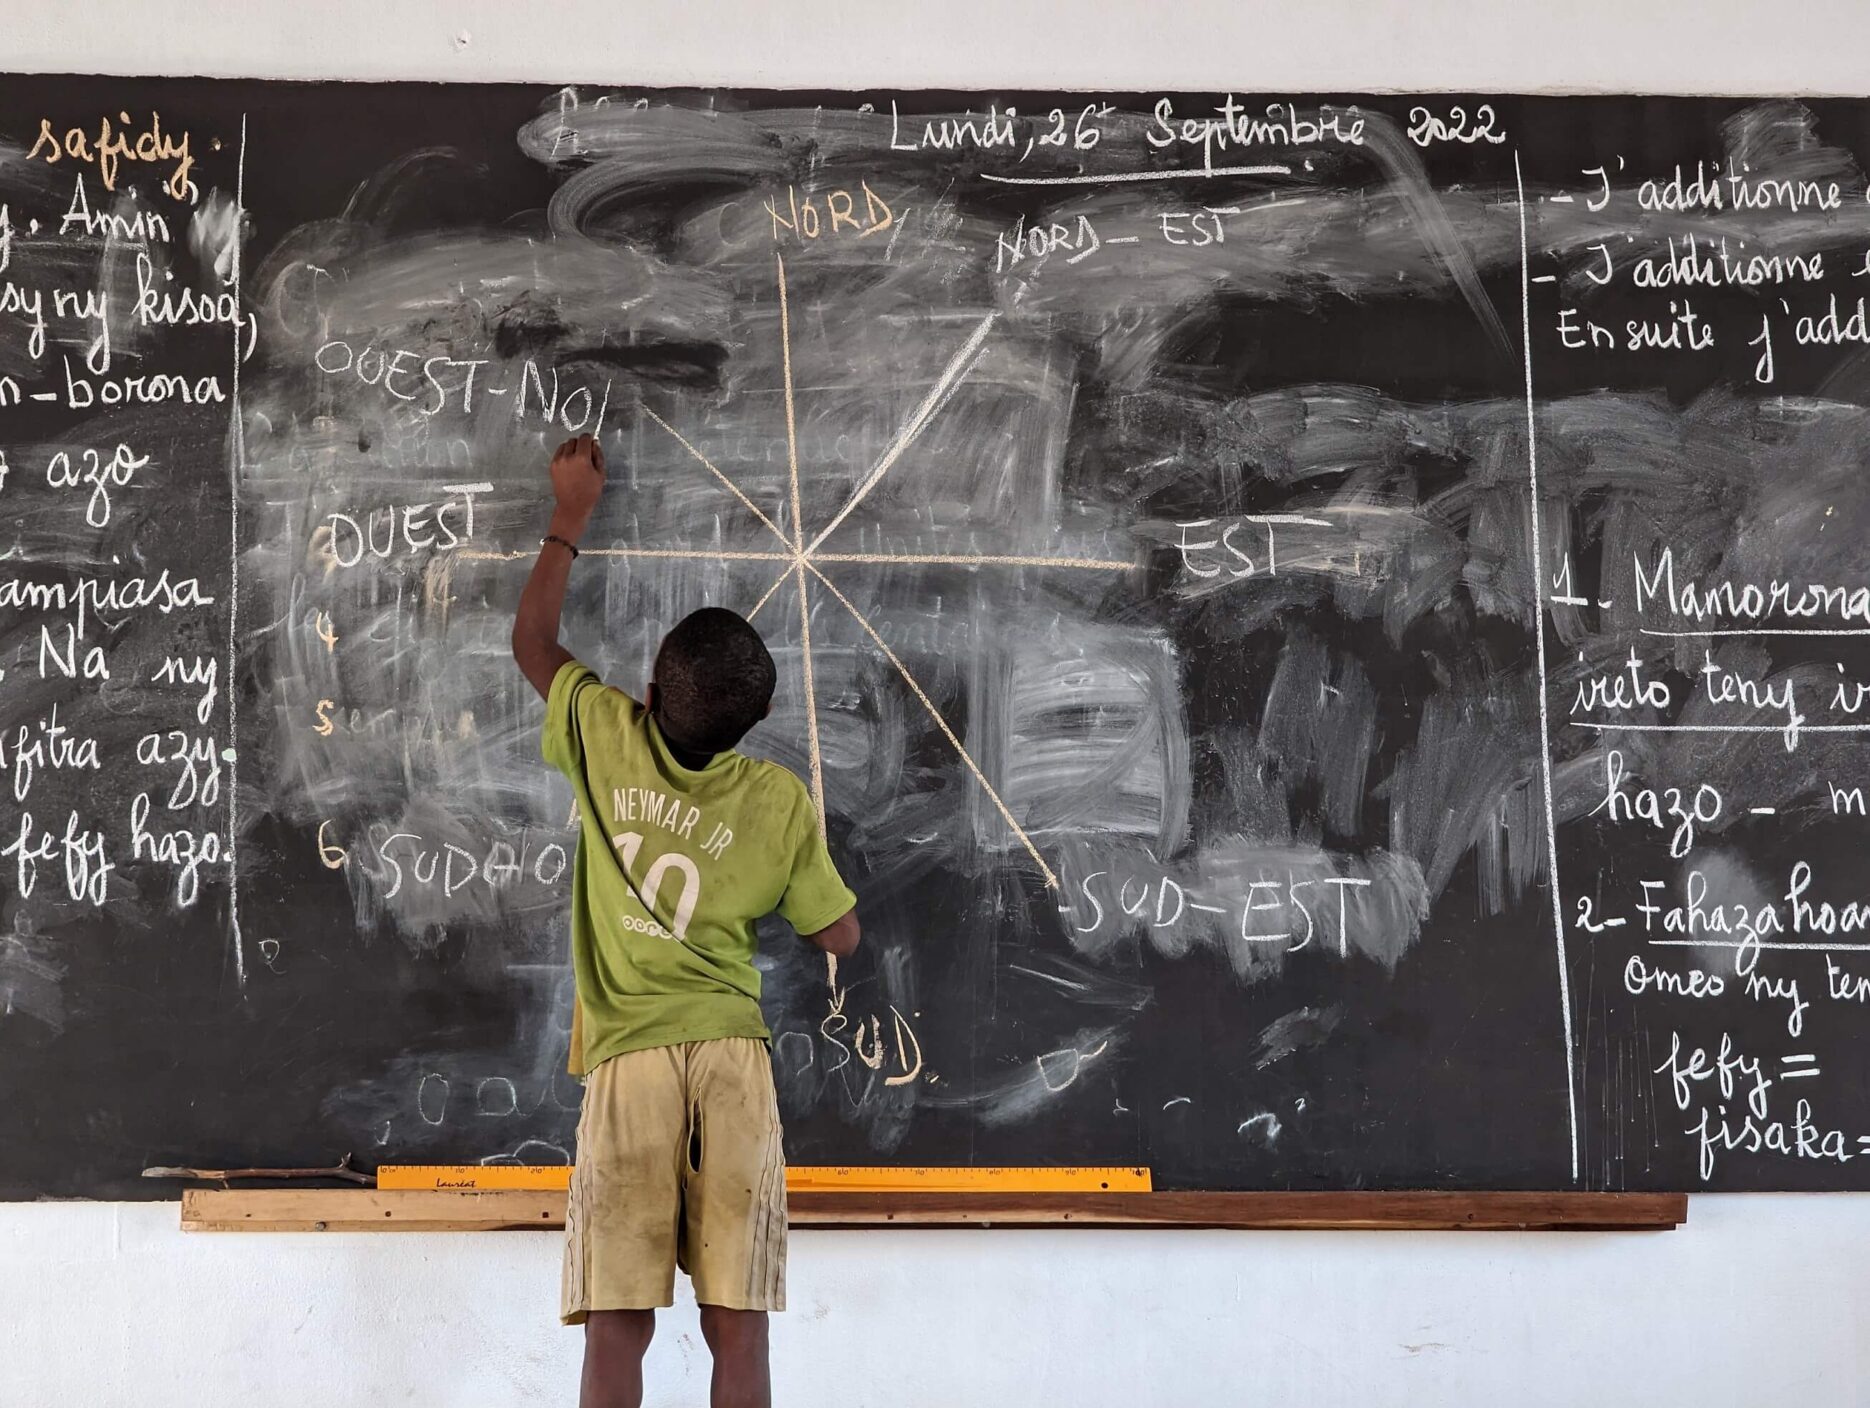 safidy.
Amin'
sy ny kisoa,
n-borona
azo
ampiasa
Na ny
fitra azy
fefy hazo.
Lundi, 26 Septembre 2022
NORD
NORD-EST
OUEST-NO
OUEST
EST
4
5
6
SUD-EST
SUD.
NEYMAR JR
10
Lauréat
- J'additionne
- J'additionne
Ensuite j'add
1- Mamorona
ireto teny
hazo - m
2- Fahazahoa
omeo ny ten
fefy =
fisaka =